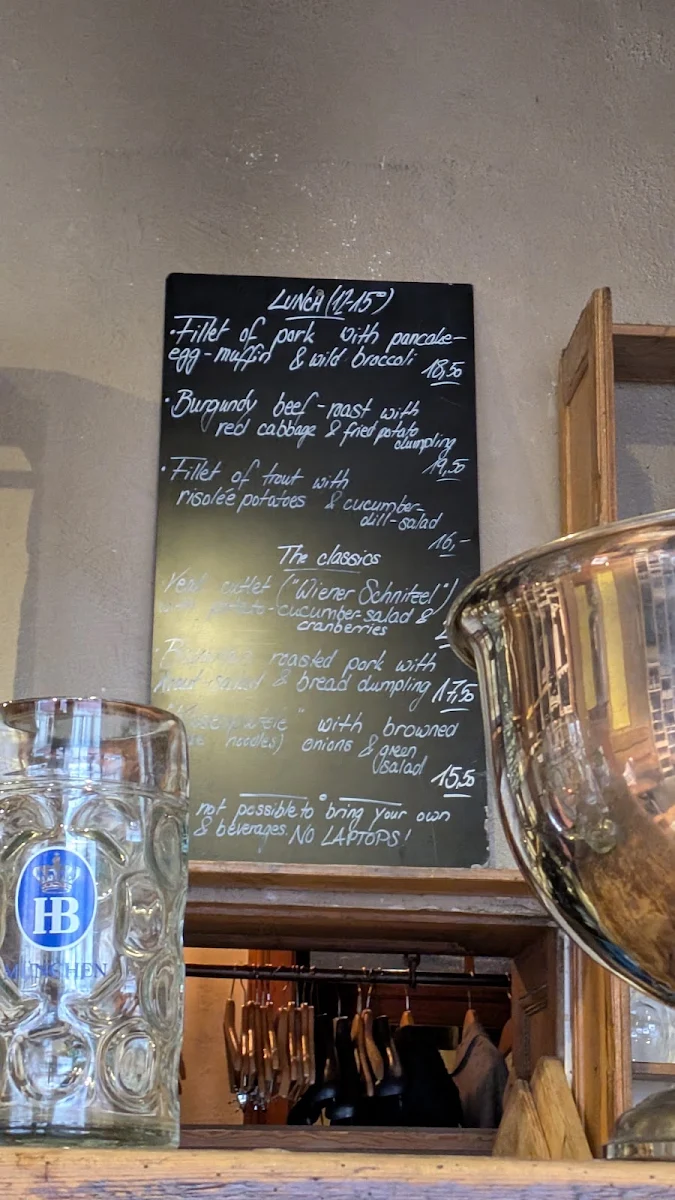 LUNCH (12-15⁰⁰)
• Fillet of pork with pancake-
egg-muffin & wild broccoli
18,50
• Burgundy beef-roast with
red cabbage & fried potato
dumpling
19,50
• Fillet of trout with
risolée potatoes & cucumber-
dill-salad
16,-
The classics
Veal cutlet ("Wiener Schnitzel")
with potato-cucumber-salad &
cranberries
roasted pork with
salad & bread dumpling 17,50
" with browned
noodles) onions & green
salad
15,50
not possible to bring your own
& beverages. NO LAPTOPS!
HB
MÜNCHEN